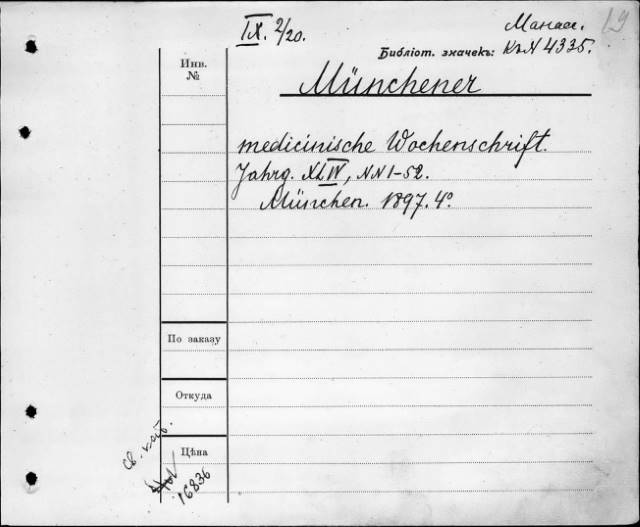 IX. 2/20.
Манас.
19
Библіот. значекъ: КъN 4335.
Инв.
№
Münchener
medicinische Wochenschrift.
Jahrg. XLIV, NN 1-52.
München. 1897. 4º
По заказу
Откуда
Цѣна
16836